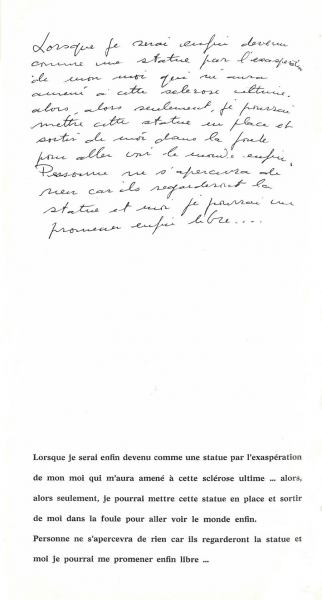 Lorsque je serai enfin devenu
comme une statue par l'exaspération
de mon moi qui m'aura
amené à cette sclérose ultime.
alors, alors seulement, je pourrai
mettre cette statue en place et
sortir de moi dans la foule
pour aller voir le monde enfin.
Personne ne s'apercevra de
rien car ils regarderont la
statue et moi je pourrai me
promener enfin libre....
Lorsque je serai enfin devenu comme une statue par l'exaspération
de mon moi qui m'aura amené à cette sclérose ultime ... alors,
alors seulement, je pourrai mettre cette statue en place et sortir
de moi dans la foule pour aller voir le monde enfin.
Personne ne s'apercevra de rien car ils regarderont la statue et
moi je pourrai me promener enfin libre ...